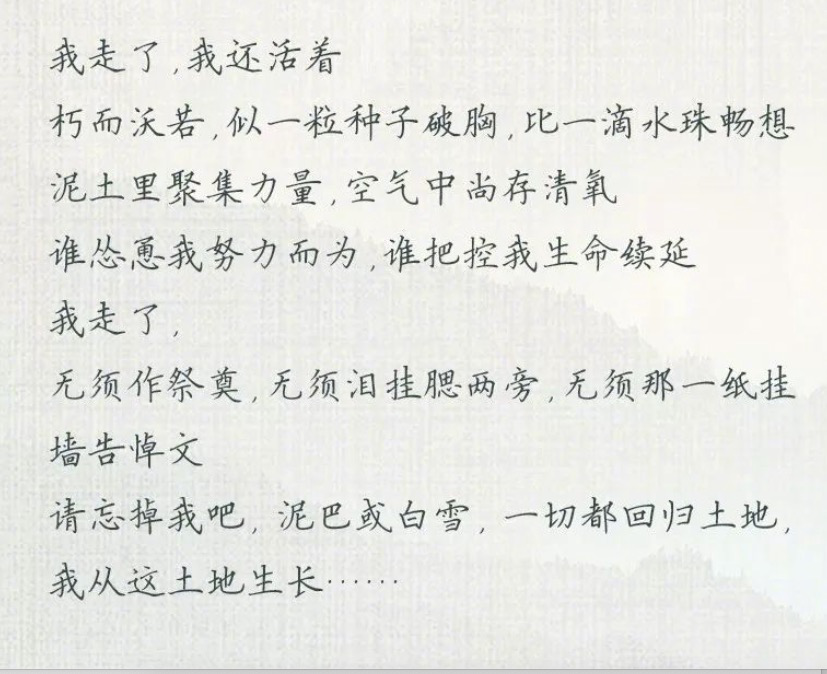 我走了,我还活着
朽而沃若,似一粒种子破胸,比一滴水珠畅想
泥土里聚集力量,空气中尚存清氧
谁怂恿我努力而为,谁把控我生命续延
我走了,
无须作祭奠,无须泪挂腮两旁,无须那一纸挂
墙告悼文
请忘掉我吧, 泥巴或白雪, 一切都回归土地,
我从这土地生长……